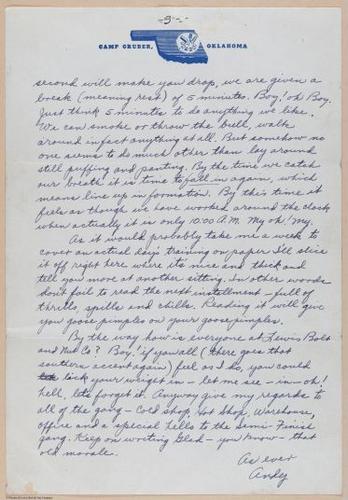 -3-
CAMP GRUBER, OKLAHOMA
second will make you drop, we are given a
break (meaning rest) of 5 minutes. Boy! oh Boy.
Just think 5 minutes to do anything we like.
We can smoke or throw the bull, walk
around in fact anything at all. But somehow no
one seems to do much other than lay around
still puffing and panting. By the time we catch
our breath it is time to fall in again, which
means line up in formation. By this time it
feels as though we have worked around the clock
when actually it is only 10:00 A.M. My oh! my.
As it would probably take me a week to
cover an actual days training on paper I'll slice
it off right here where its nice and thick and
tell you more at another sitting. In other words
don't fail to read the next installment - full of
thrills, spills and chills. Reading it will give
you goose pimples on your goose pimples.
By the way how is everyone at Lewis Bolt
and Nut Co? Boy! if you all (there goes that
southern accent again) feel as I do, you could
lick your weight in - let me see - in - oh!
hell, lets forget it. Anyway give my regards to
all of the gang - Cold shop, Hot Shop, Warehouse,
office and a special hello to the Semi-Finish
gang. Keep on writing Glad - you know - that
old morale.
As ever
Andy